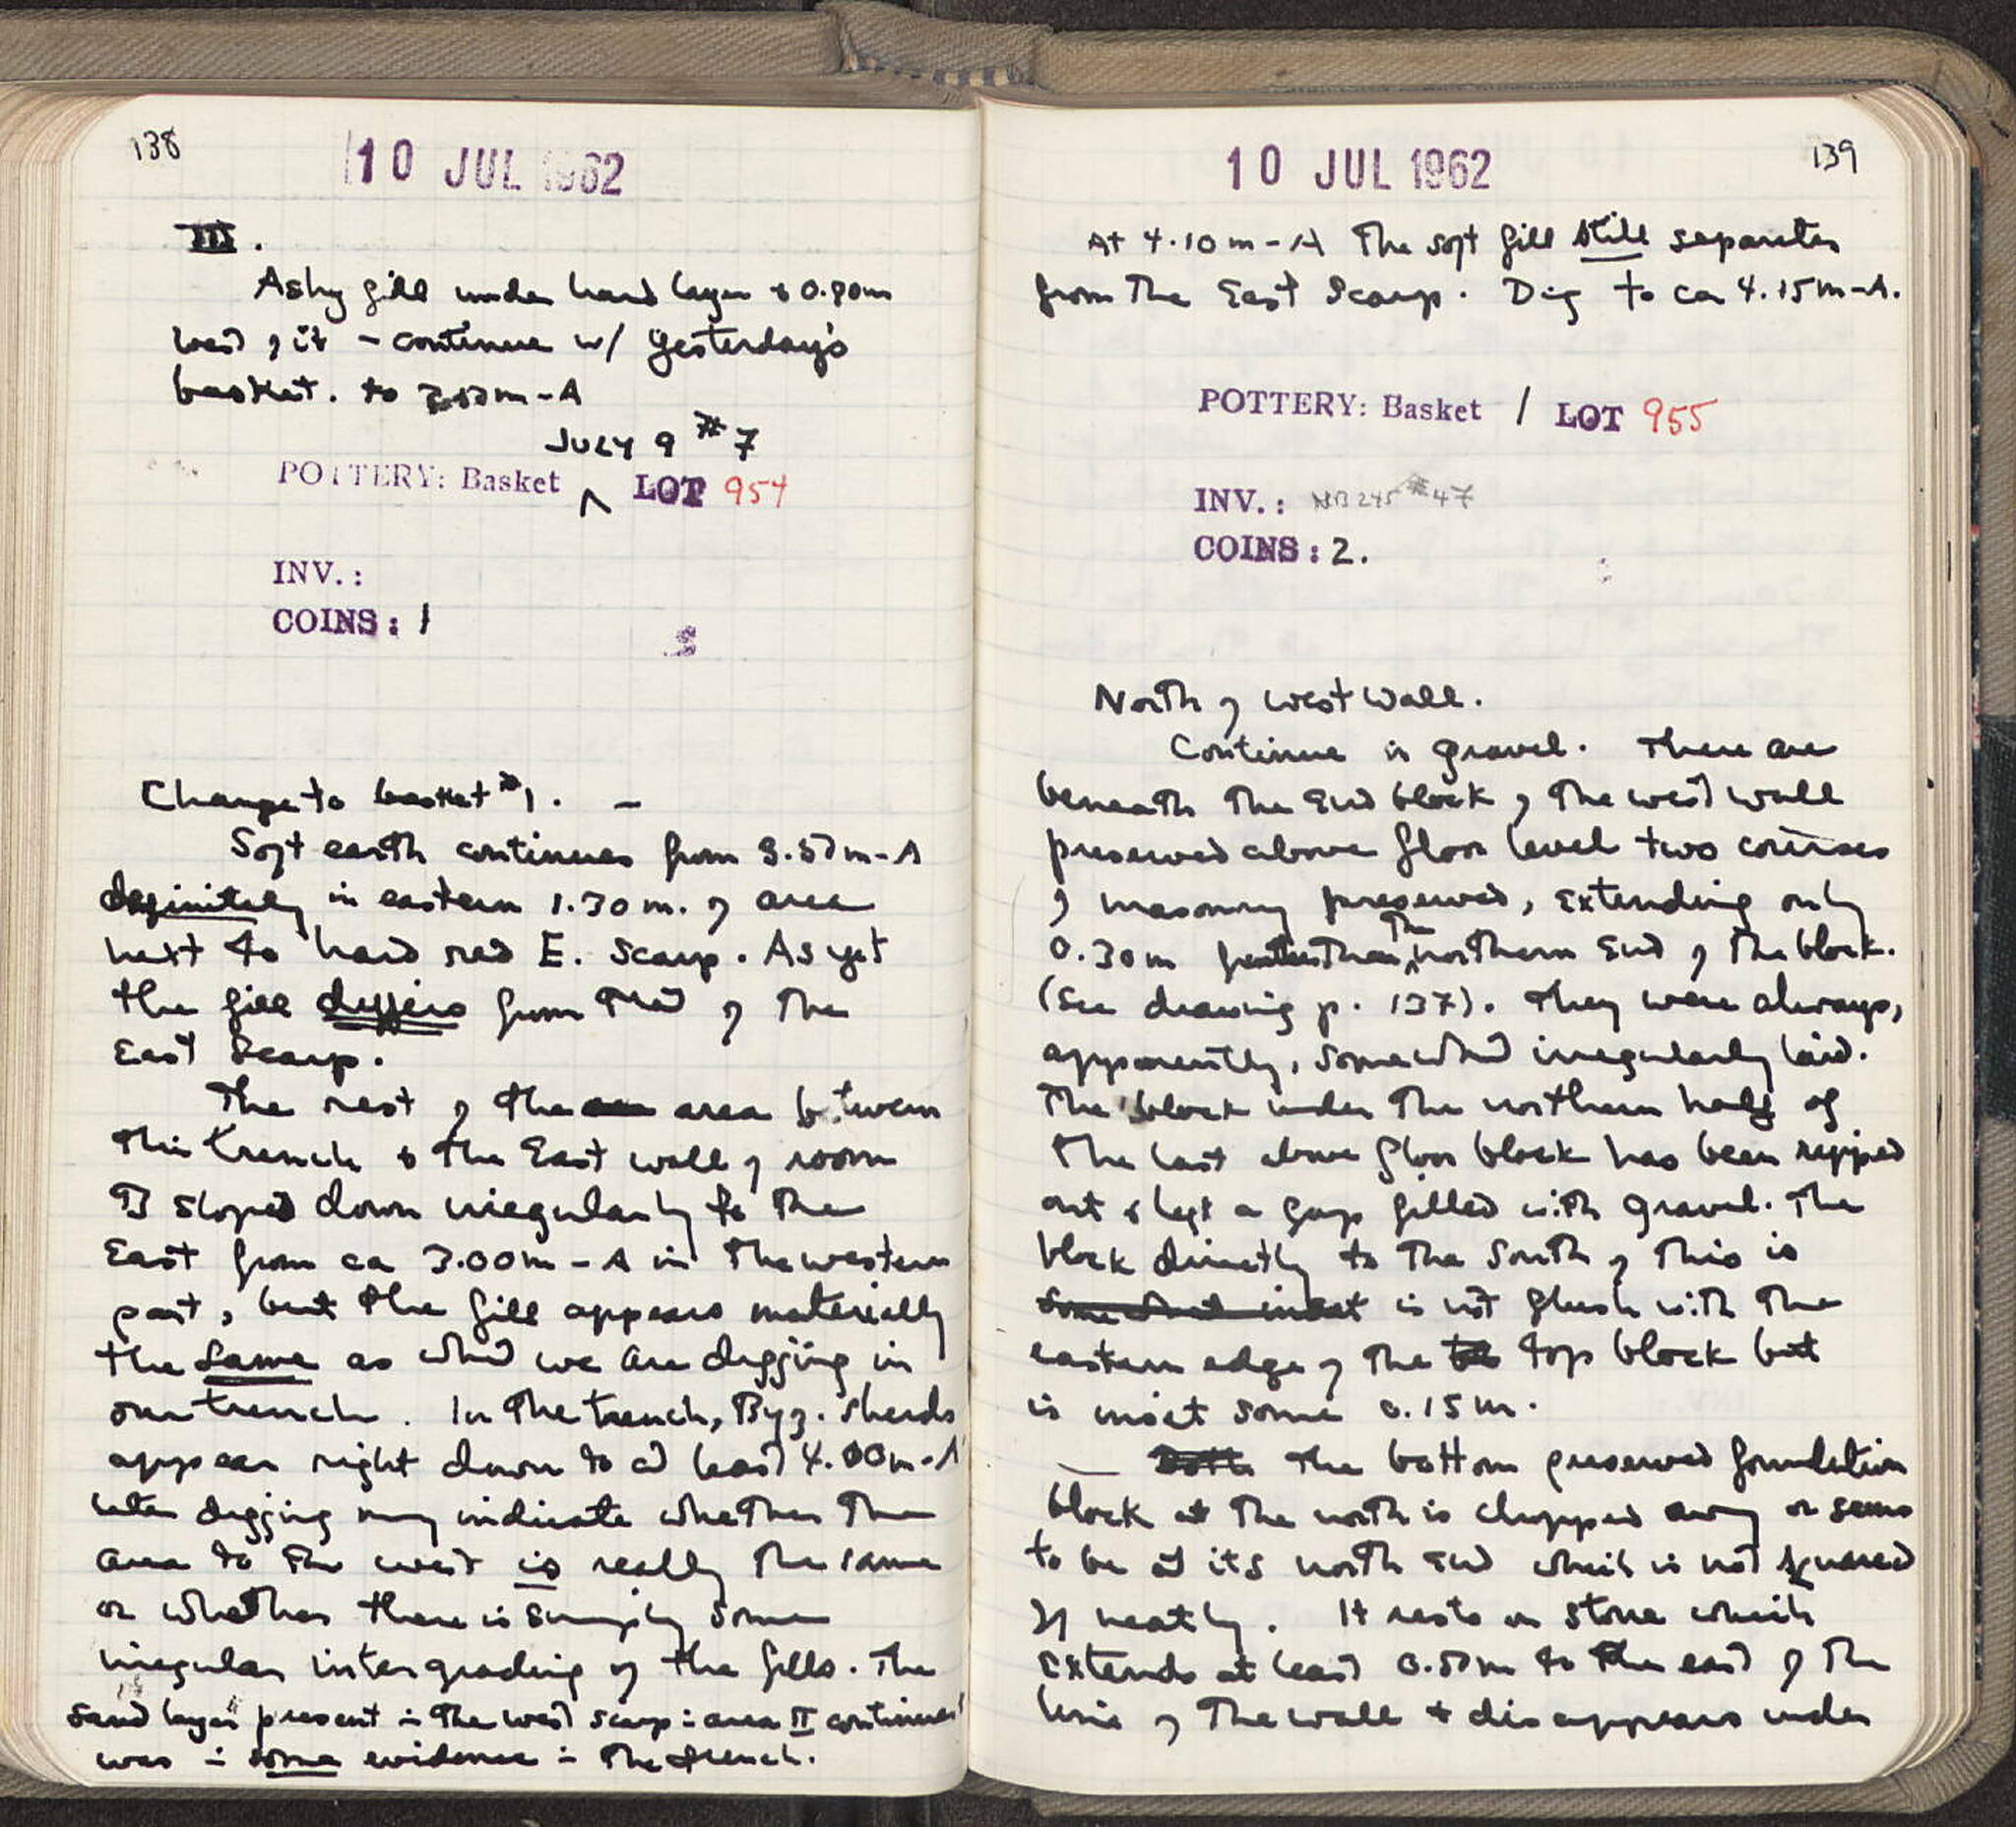 138
10 JUL 1962
III.
Ashy fill under hard layer & 0.80m
west of it - continue w/ yesterday's
basket. to m-A
JULY 9 #7
POTTERY: Basket ^ LOT 954
INV.:
COINS: 1
Change to basket #1. -
Soft earth continues from 3.50m-A
definitely in eastern 1.30m. of area
next to hard red E. Scarp. As yet
the fill differs from that of the
East Scarp.
The rest of the area between
this trench & the East wall of room
I sloped down irregularly to the
East from ca 3.00m-A in the western
part, but the fill appears materially
the same as what we are digging in
our trench. In the trench, Byz. sherds
appear right down to at least 4.00m-A
later digging may indicate whether the
area to the west is really the same
or whether there is simply some
irregular intergrading of the fills. The
sand layer present in the west scarp in area II continued
was in some evidence in the trench.
10 JUL 1962
139
At 4.10m-A the soft fill still separates
from the East Scarp. Dig to ca 4.15m-A.
POTTERY: Basket / LOT 955
INV.: NB 245 #47
COINS: 2.
North of west wall.
Continue in gravel. There are
beneath the end block of the west wall
preserved above floor level two courses
of masonry preserved, extending only
0.30m than the northern end of the block.
(See drawing p. 137). They were always,
apparently, somewhat irregularly laid.
The block under the northern half of
the last above floor block has been ripped
out & left a gap filled with gravel. The
block directly to the South of this is
somewhat inset is not flush with the
eastern edge of the top block but
is inset some 0.15m.
— Both The bottom preserved foundation
block at the north is chopped away or seems
to be at its north end which is not squared
off neatly. It rests on stone which
extends at least 0.50m to the east of the
line of the wall & disappears under